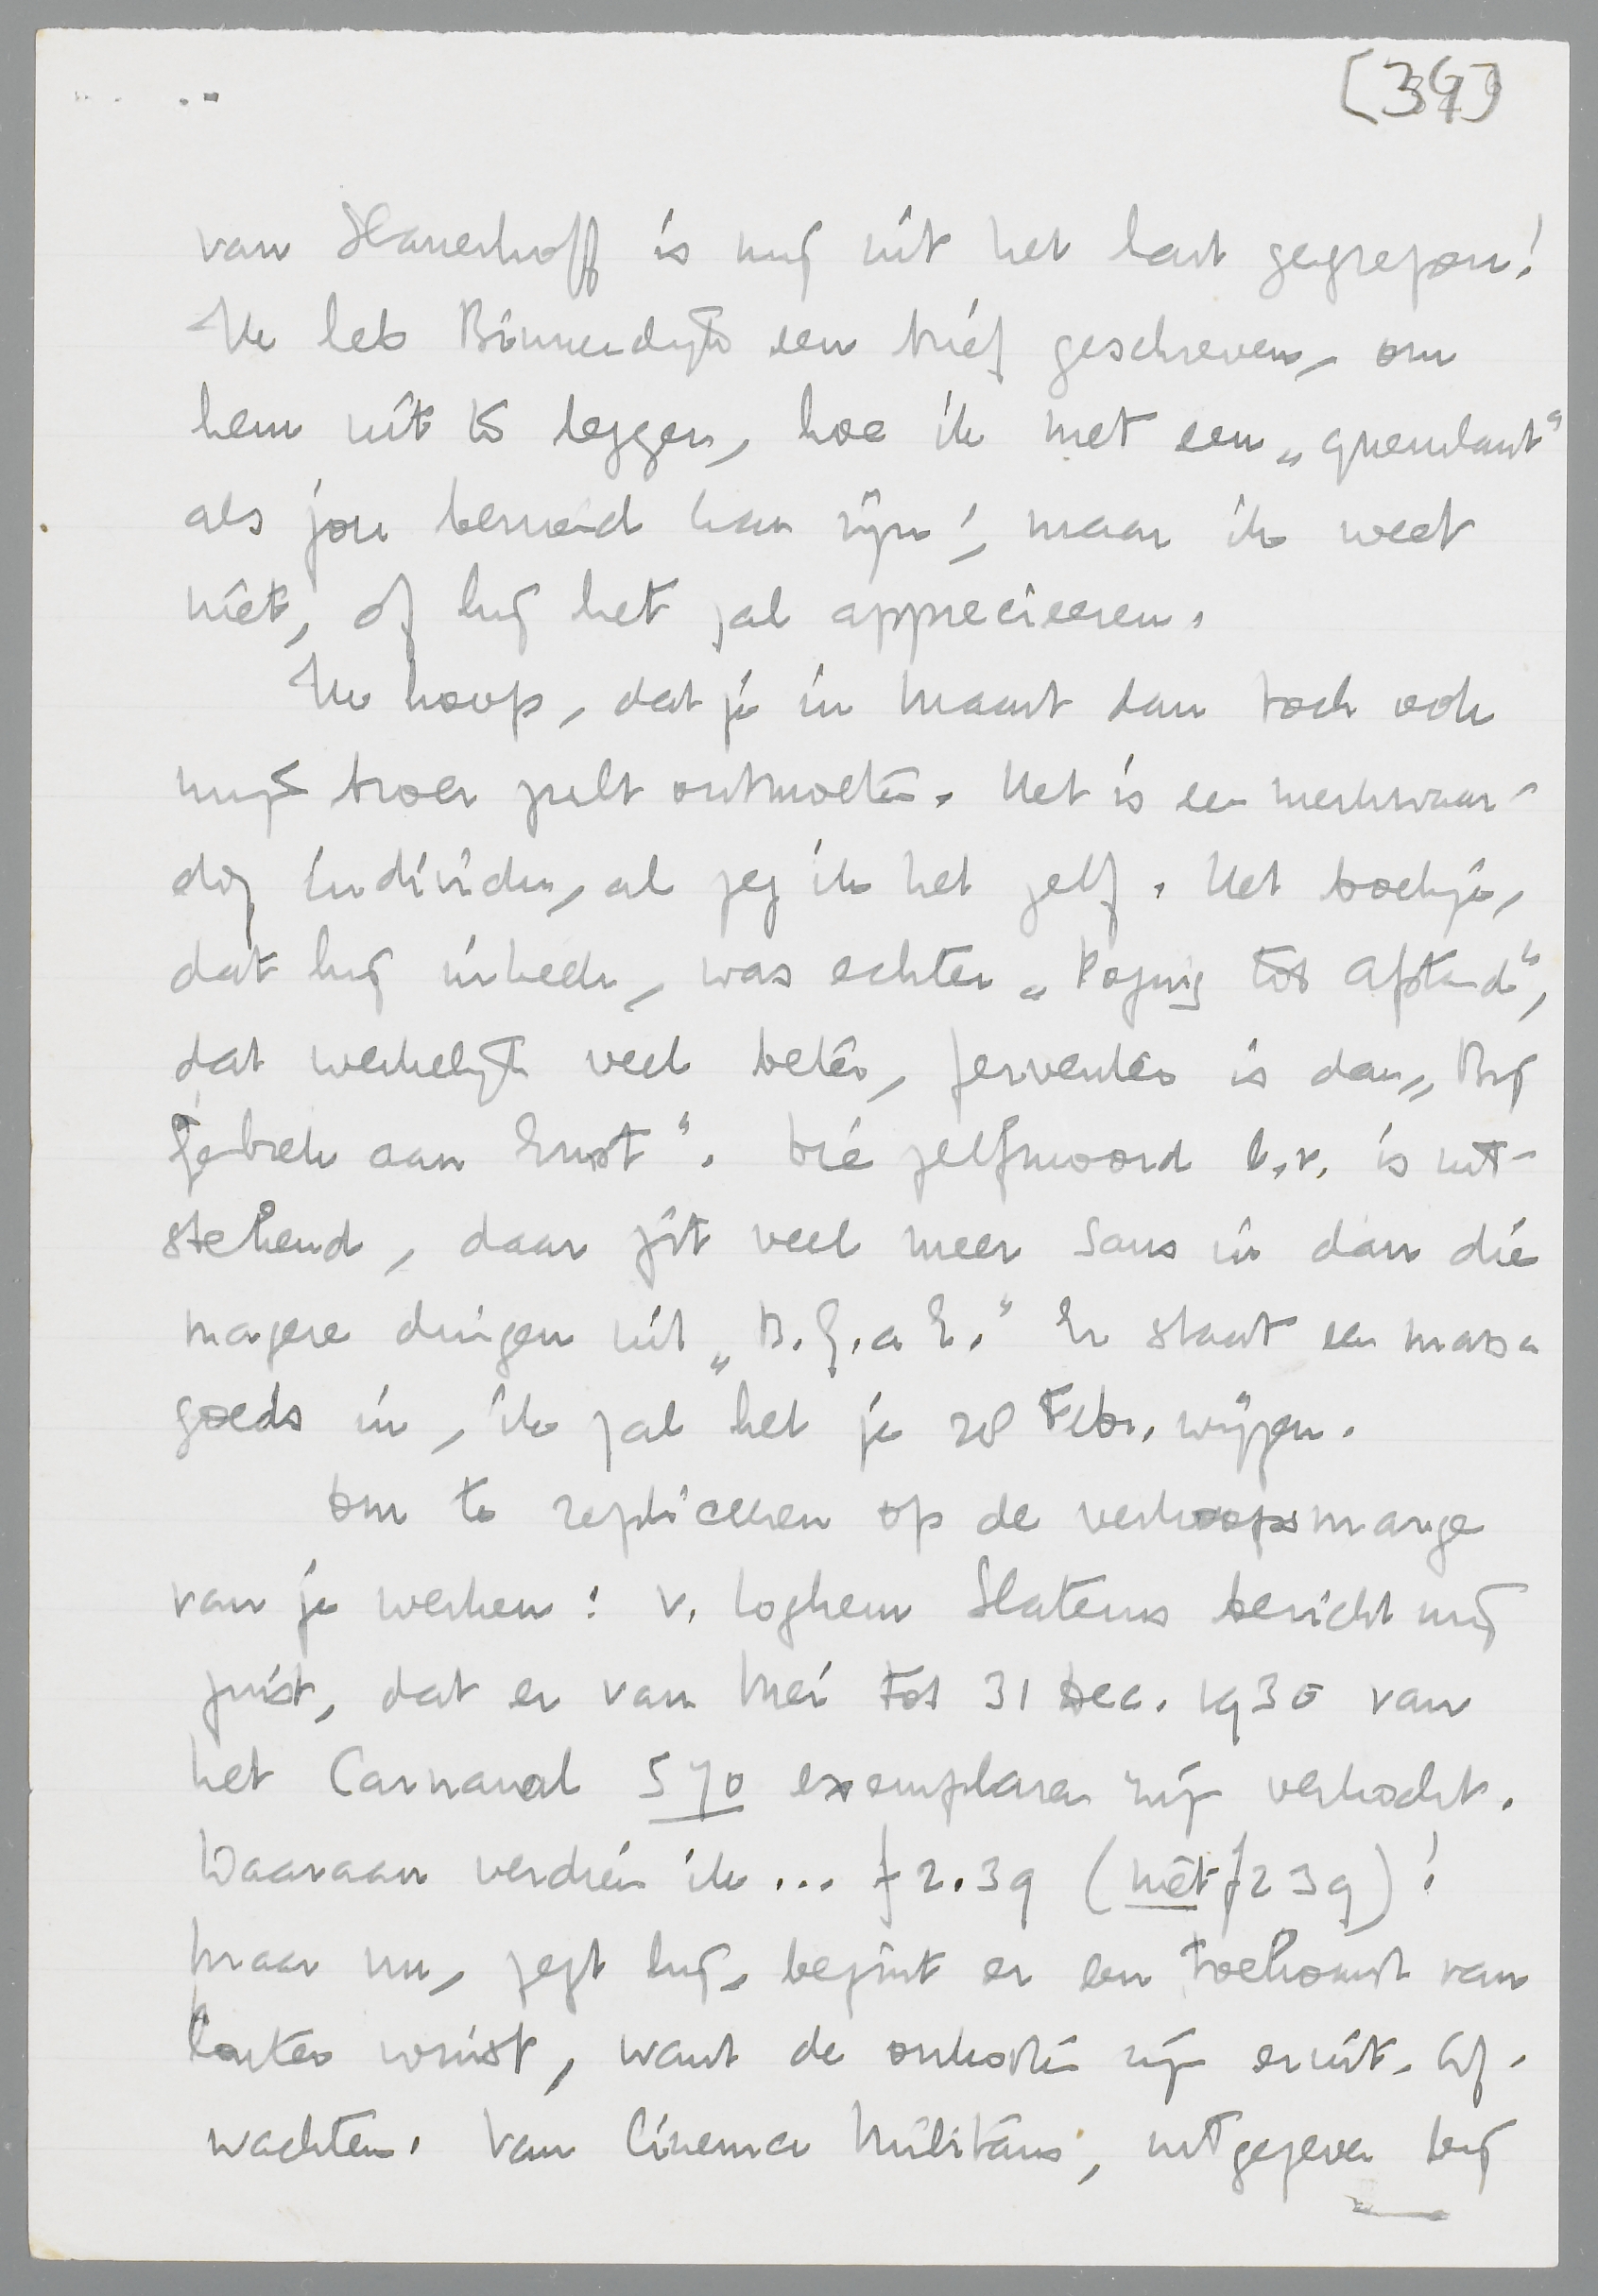 [39]
van Slauerhoff is mij uit het hart gegrepen!
Ik heb Binnendijk een brief geschreven, om
hem uit te leggen, hoe ik met een „querulant”
als jou bevriend kan zijn!, maar ik weet
niet, of hij het zal apprecieeren.
Ik hoop, dat je in Maart dan toch ook
mijn broer zult ontmoeten. Het is een merkwaar-
dig individu, al zeg ik het zelf. Het boekje,
dat hij inkeek, was echter „Poging tot Afstand”,
dat werkelijk veel beter, ferventer is dan „Bij
Gebrek aan Ernst”. Die zelfmoord b.v. is uit-
stekend, daar zit veel meer saus in dan die
magere dingen uit „B.G.a E.” Er staat een massa
goeds in, ik zal het je 28 Febr. wijzen.
Om te repliceeren op de verkoopsmarge
van je werken: v. Loghum Slaterus bericht mij
juist, dat er van Mei tot 31 Dec. 1930 van
het Carnaval 570 exemplaren zijn verkocht.
Daaraan verdien ik... f 2.39 (niet f 239)!
Maar nu, zegt hij, begint er een toekomst van
louter winst, want de onkosten zijn eruit. Af-
wachten. Van Cinema Militans, uitgegeven bij